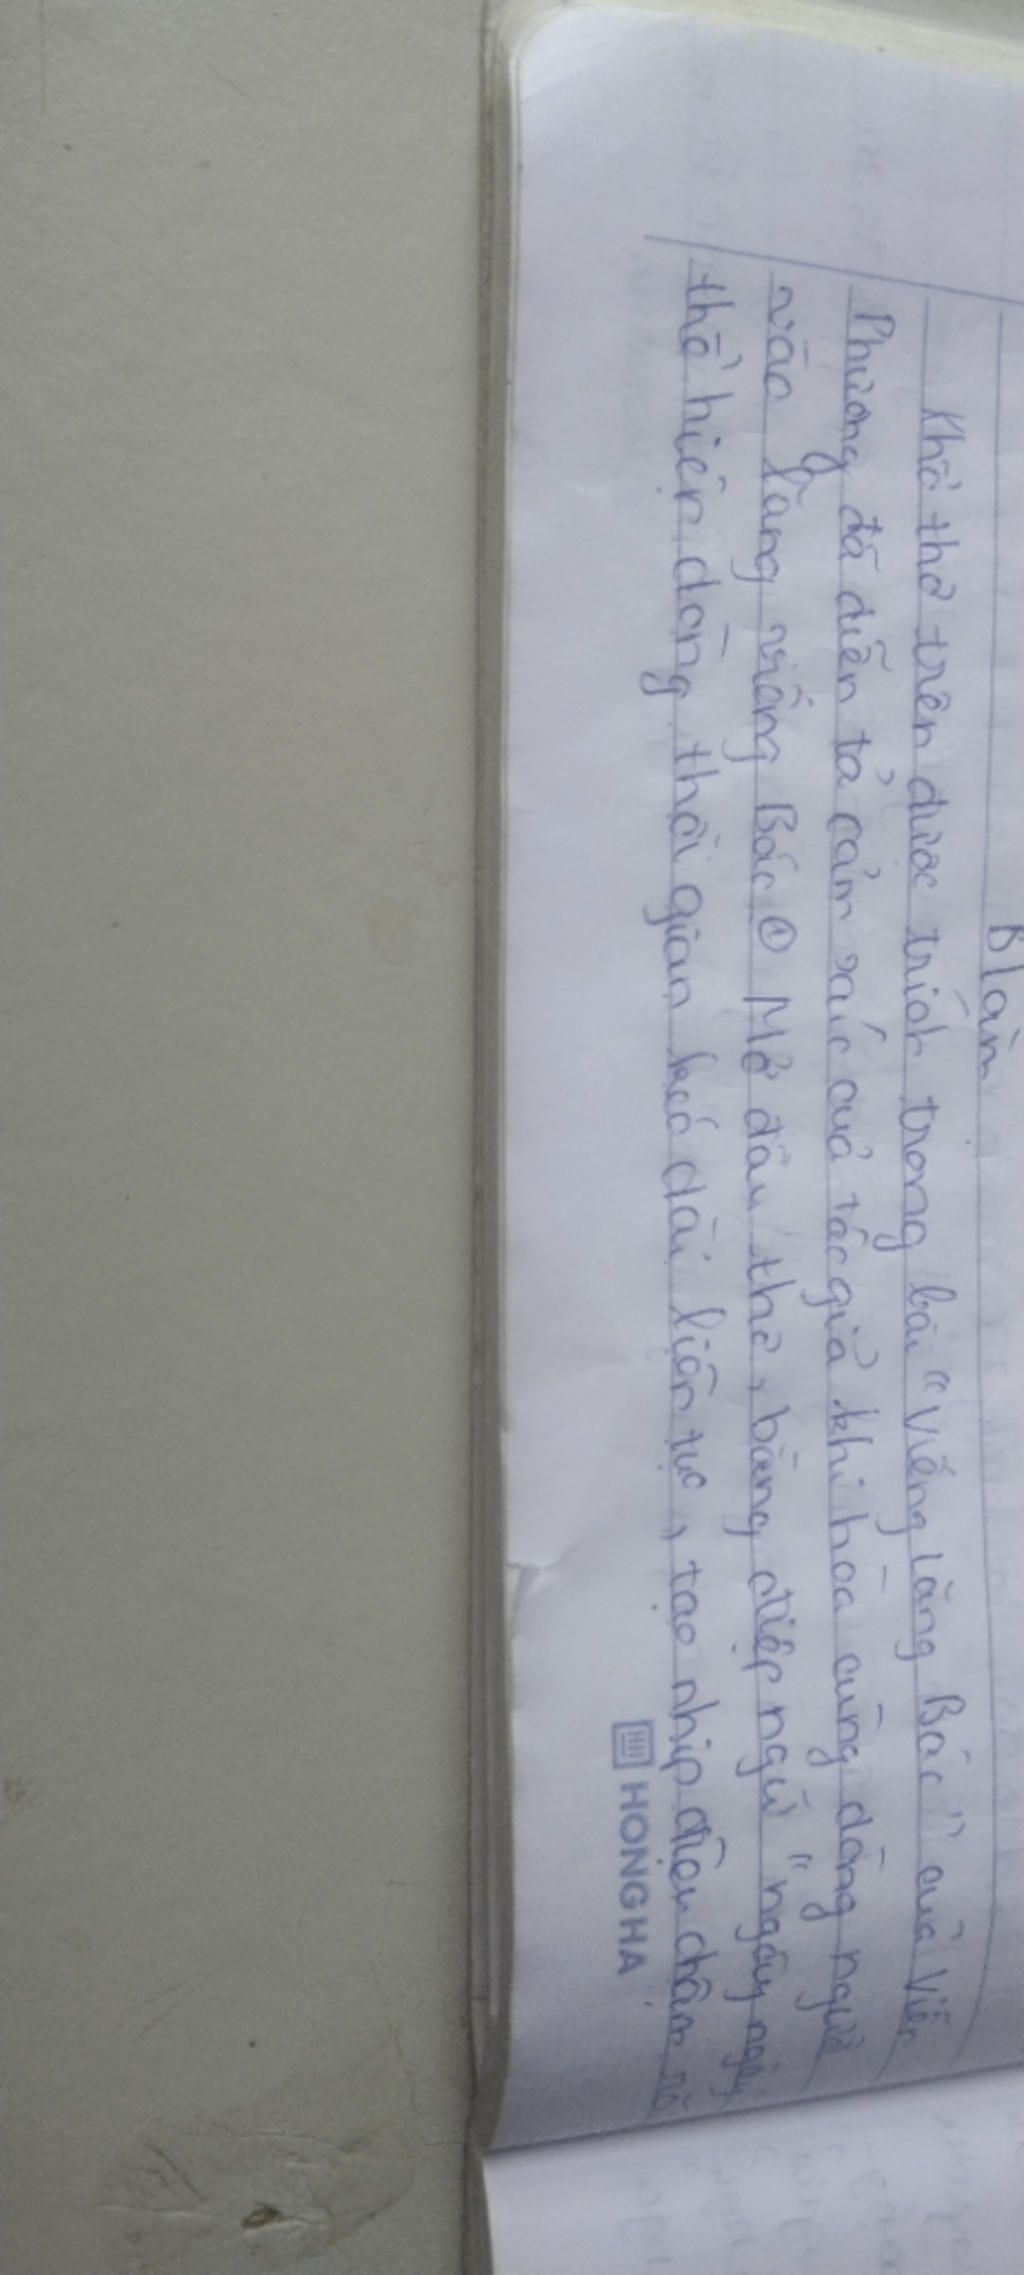 B làm
Khổ thơ trên được trích trong bài "Viếng lăng Bác" của Viễn
Phương đã diễn tả cảm xúc của tác giả khi hòa cùng dòng người
vào lăng viếng Bác ① Mở đầu thơ, bằng điệp ngữ "ngày ngày
thể hiện dòng thời gian kéo dài liên tục, tạo nhịp điệu chậm rãi
HONG HA